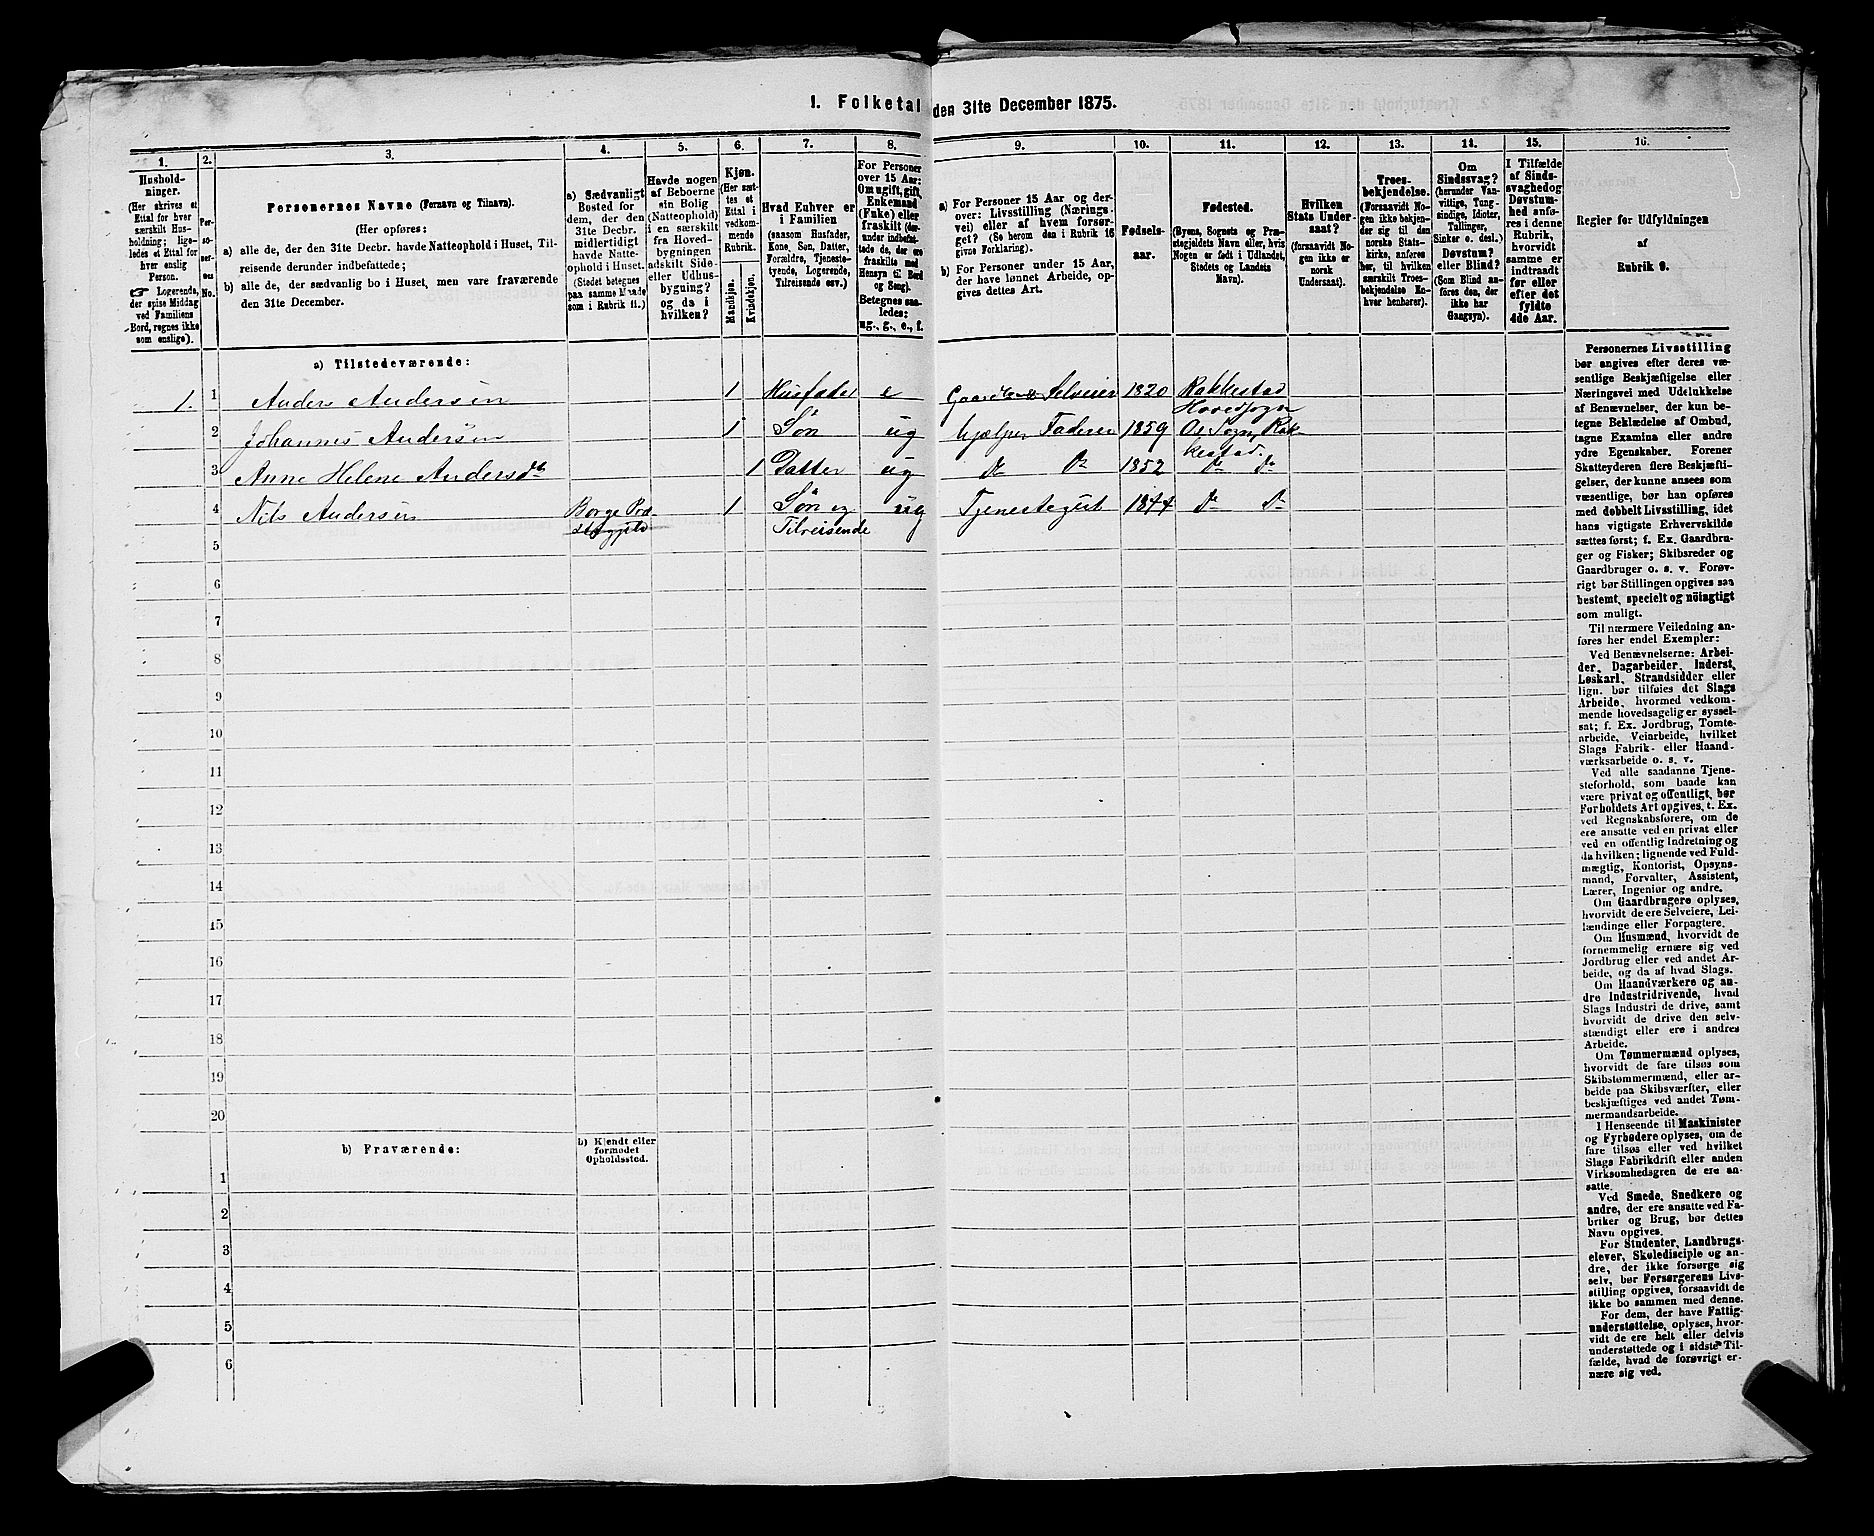 1. Folketal den 31te December 1875.
1.
Hushold-
ninger.
(Her skrives et
Ettal for hver
særskilt Hus-
holdning; lige-
ledes et Ettal for
hver enslig
Person.
Logerende,
der spise Middag
ved Familiens
Bord, regnes ikke
som enslige).
2.
Per-
so-
ner-
nes
No.
3.
Personernes Navne (Fornavn og Tilnavn).
(Her opføres:
a) alle de, der den 31te Decbr. havde Natteophold i Huset, Til-
reisende derunder indbefattede;
b) alle de, der sædvanlig bo i Huset, men vare fraværende
den 31te December.
4.
a) Sædvanligt
Bosted for
dem, der den
31te Decbr.
midlertidigt
havde Natte-
ophold i Huset.
(Stedet betegnes
paa samme Maade
som i Rubrik 11.)
5.
Havde nogen
af Beboerne
sin Bolig
(Natteophold)
i en særskilt
fra Hoved-
bygningen
adskilt Side-
eller Udhus-
bygning?
og da i
hvilken?
6.
Kjøn.
(Her sæt-
tes et
Ettal i
vedkom-
mende
Rubrik.
Mandkjøn.
Kvindekjøn.
7.
Hvad Enhver er
i Familien
(saasom Husfader,
Kone, Søn, Datter,
Forældre, Tjeneste-
tyende, Logerende,
Tilreisende osv.)
8.
For Personer
over 15 Aar:
Om ugift, gift,
Enkemand
(Enke) eller
fraskilt (der-
under indbefat-
tede de, der ere
fraskilte med
Hensyn til Bord
og Seng).
Betegnes saa-
ledes:
ug., g., e., f.
9.
a) For Personer 15 Aar og der-
over: Livsstilling (Nærings-
vei) eller af hvem forsør-
get? (Se herom den i Rubrik 16
givne Forklaring).
b) For Personer under 15 Aar,
der have lønnet Arbeide, op-
gives dettes Art.
10.
Fødsels-
aar.
11.
Fødested.
(Byens, Sognets og Præ-
stegjeldets Navn eller, hvis
Nogen er født i Udlandet,
Stedets og Landets
Navn).
12.
Hvilken
Stats Under-
saat?
(forsaavidt No-
gen ikke er
norsk
Undersaat).
13.
Troes-
bekjendelse.
(Forsaavidt No-
gen ikke bekjen-
der sig til den
norske Stats-
kirke, anføres
her, til hvilken
særskilt Troes-
bekjendelse En-
hver henhører).
14.
Om
Sindssvag?
(herunder Van-
vittige, Tung-
sindige, Idioter,
Tullinger,
Sinker o. desl.)
Døvstum?
eller Blind?
(Som Blind an-
føres den, der
ikke har
Gangsyn).
15.
I Tilfælde
af Sinds-
svaghed og
Døvstum-
hed anfø-
res i denne
Rubrik,
hvorvidt
samme er
indtraadt
før eller
efter det
fyldte
4de Aar.
16.
Regler for Udfyldningen
af
Rubrik 9.
a) Tilstedeværende:
1. 1 Anders Andersen 1 Husfader e Gaardbr. Selveier 1820 Rakkestad
Hovedsogn
2 Johannes Andersen 1 Søn ug hjælper Faderen 1859 Os Sogn, Rak-
kestad.
3 Anne Helene Andersdtr 1 Datter ug Do Do 1852 Do Do
4 Nils Andersen Borge Præ- 1 Søn og ug Tjenestegut 1844 Do Do
stegjeld Tilreisende
5
6
7
8
9
10
11
12
13
14
15
16
17
18
19
20
b) Fraværende:
b) Kjendt eller
formodet
Opholdssted.
1
2
3
4
5
6
Personernes Livsstilling
bør angives efter deres væ-
sentlige Beskjæftigelse eller
Næringsvei med Udelukkelse
af Benævnelser, der kun be-
tegne Beklædelse af Ombud,
tagne Examina eller andre
ydre Egenskaber. Forener
Skatteyderen flere Beskjæfti-
gelser, der kunne ansees som
væsentlige, bør han opføres
med dobbelt Livsstilling, idet
hans vigtigste Erhvervskilde
sættes først; f. Ex. Gaardbru-
ger og Fisker; Skibsreder og
Gaardbruger o. s. v. Forøv-
rigt bør Stillingen opgives saa
bestemt, specielt og nöiagtigt
som muligt.
Til nærmere Veiledning an-
føres her endel Exempler:
Ved Benævnelserne: Arbei-
der, Dagarbeider, Inderst,
Løskarl, Strandsidder eller
lign. bør tilføies det Slags
Arbeide, hvormed vedkom-
mende hovedsagelig er syssel-
sat; f. Ex. Jordbrug, Tomte-
arbeide, Veiarbeide, hvilket
Slags Fabrik- eller Haand-
værksarbeide o. s. v.
Ved alle saadanne Tjene-
steforhold, som baade kan
være privat og offentligt, bør
Forholdets Art opgives, t. Ex.
ved Regnskabsførere, om de
ere ansatte ved en privat eller
ved en offentlig Indretning og
da hvilken; lignende ved Fuld-
mægtig, Kontorist, Opsyns-
mand, Forvalter, Assistent,
Lærer, Ingeniør og andre.
Om Gaardbrugere oplyses,
hvorvidt de ere Selveiere, Lei-
lændinge eller Forpagtere.
Om Husmænd, hvorvidt de
fornemmelig ernære sig ved
Jordbrug eller ved andet Ar-
beide, og da af hvad Slags.
Om Haandværkere og an-
dre Industridrivende, hvad
Slags Industri de drive, samt
hvorvidt de drive den selv-
stændigt eller ere i andres
Arbeide.
Om Tømmermænd oplyses,
hvorvidt de fare tilsøs som
Skibstømmermænd, eller ar-
beide paa Skibsværfter, eller
beskjæftiges ved andet Tøm-
mermandsarbeide.
I Henseende til Maskinister
og Fyrbødere oplyses, om de
fare tilsøs eller ved hvilket
Slags Fabrikdrift eller anden
Virksomhedsgren de ere an-
satte.
Ved Smede, Snedkere og
andre, der ere ansatte ved Fa-
briker og Brug, bør dettes
Navn opgives.
For Studenter, Landbrugs-
elever, Skoledisciple og an-
dre, der ikke forsørge sig
selv, bør Forsørgerens Livs-
stilling opgives, forsaavidt de
ikke bo sammen med denne.
For dem, der have Fattig-
understøttelse, oplyses, hvor-
vidt de ere helt eller delvis
understøttede og i sidste Til-
fælde, hvad de forøvrigt er-
nære sig ved.